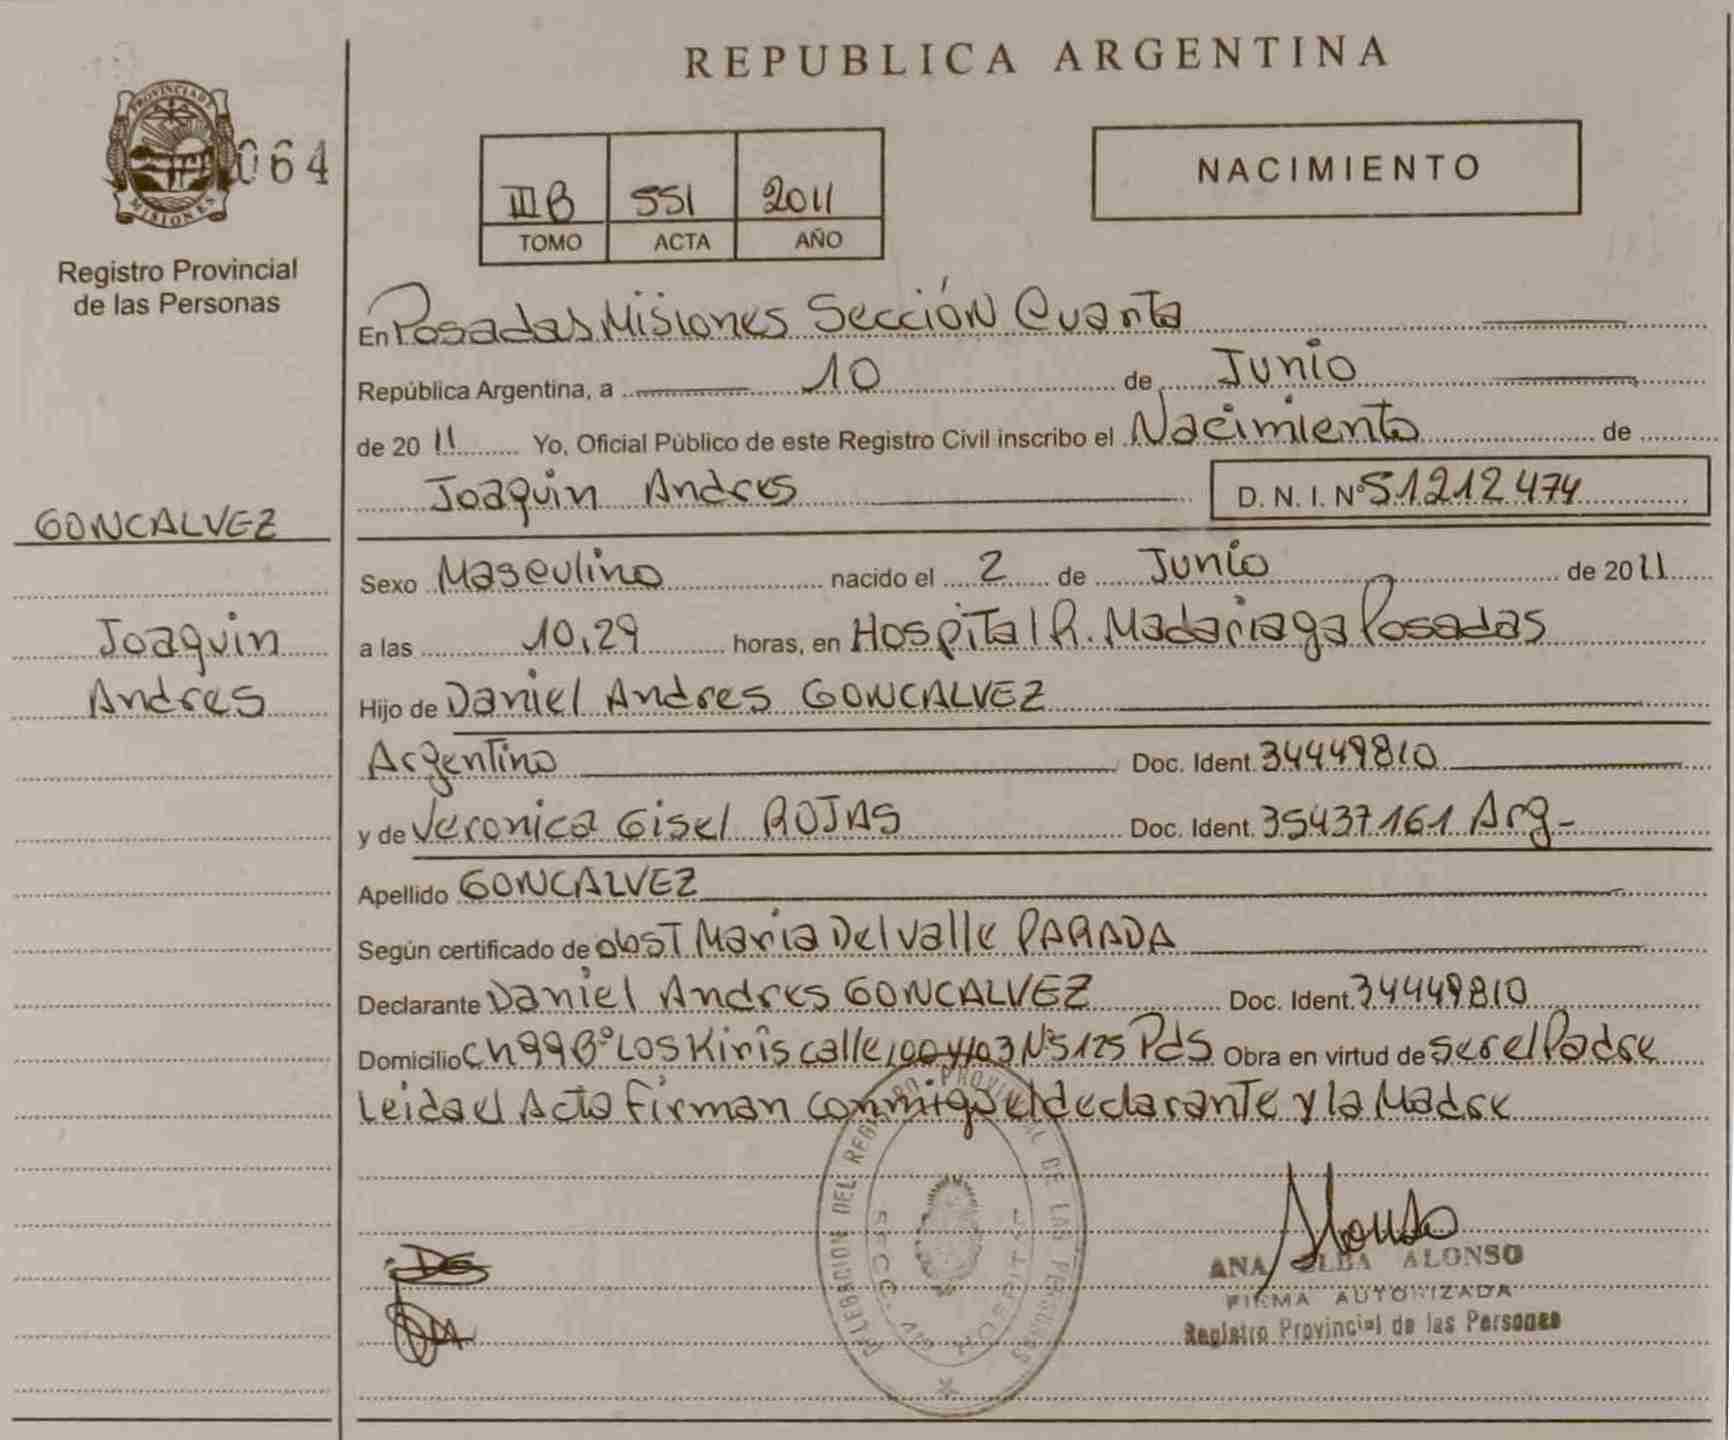 REPUBLICA ARGENTINA
PROVINCIA DE
MISIONES
064
Registro Provincial
de las Personas
III B 551 2011
TOMO ACTA AÑO
NACIMIENTO
En Posadas Misiones Sección Cuarta
República Argentina, a 10 de Junio
de 20 11 Yo, Oficial Público de este Registro Civil inscribo el Nacimiento de
Joaquin Andres D. N. I. Nº 51212474
GONCALVEZ
Joaquin
Andres
Sexo Masculino nacido el 2 de Junio de 20 11
a las 10,29 horas, en Hospital R. Madariaga Posadas
Hijo de Daniel Andres GONCALVEZ
Argentino Doc. Ident. 34449810
y de Veronica Gisel ROJAS Doc. Ident. 35437161 Arg-
Apellido GONCALVEZ
Según certificado de obst Maria Del Valle PARADA
Declarante Daniel Andres GONCALVEZ Doc. Ident. 34449810
Domicilio Ch 99 Bº Los Kiris calle 100 y 103 Nº 5125 Pds Obra en virtud de ser el Padre
Leida el Acta Firman conmigo el declarante y la Madre
DELEGACION DEL REGISTRO PROVINCIAL DE LAS PERSONAS
Alonso
ANA ELBA ALONSO
FIRMA AUTORIZADA
Registro Provincial de las Personas